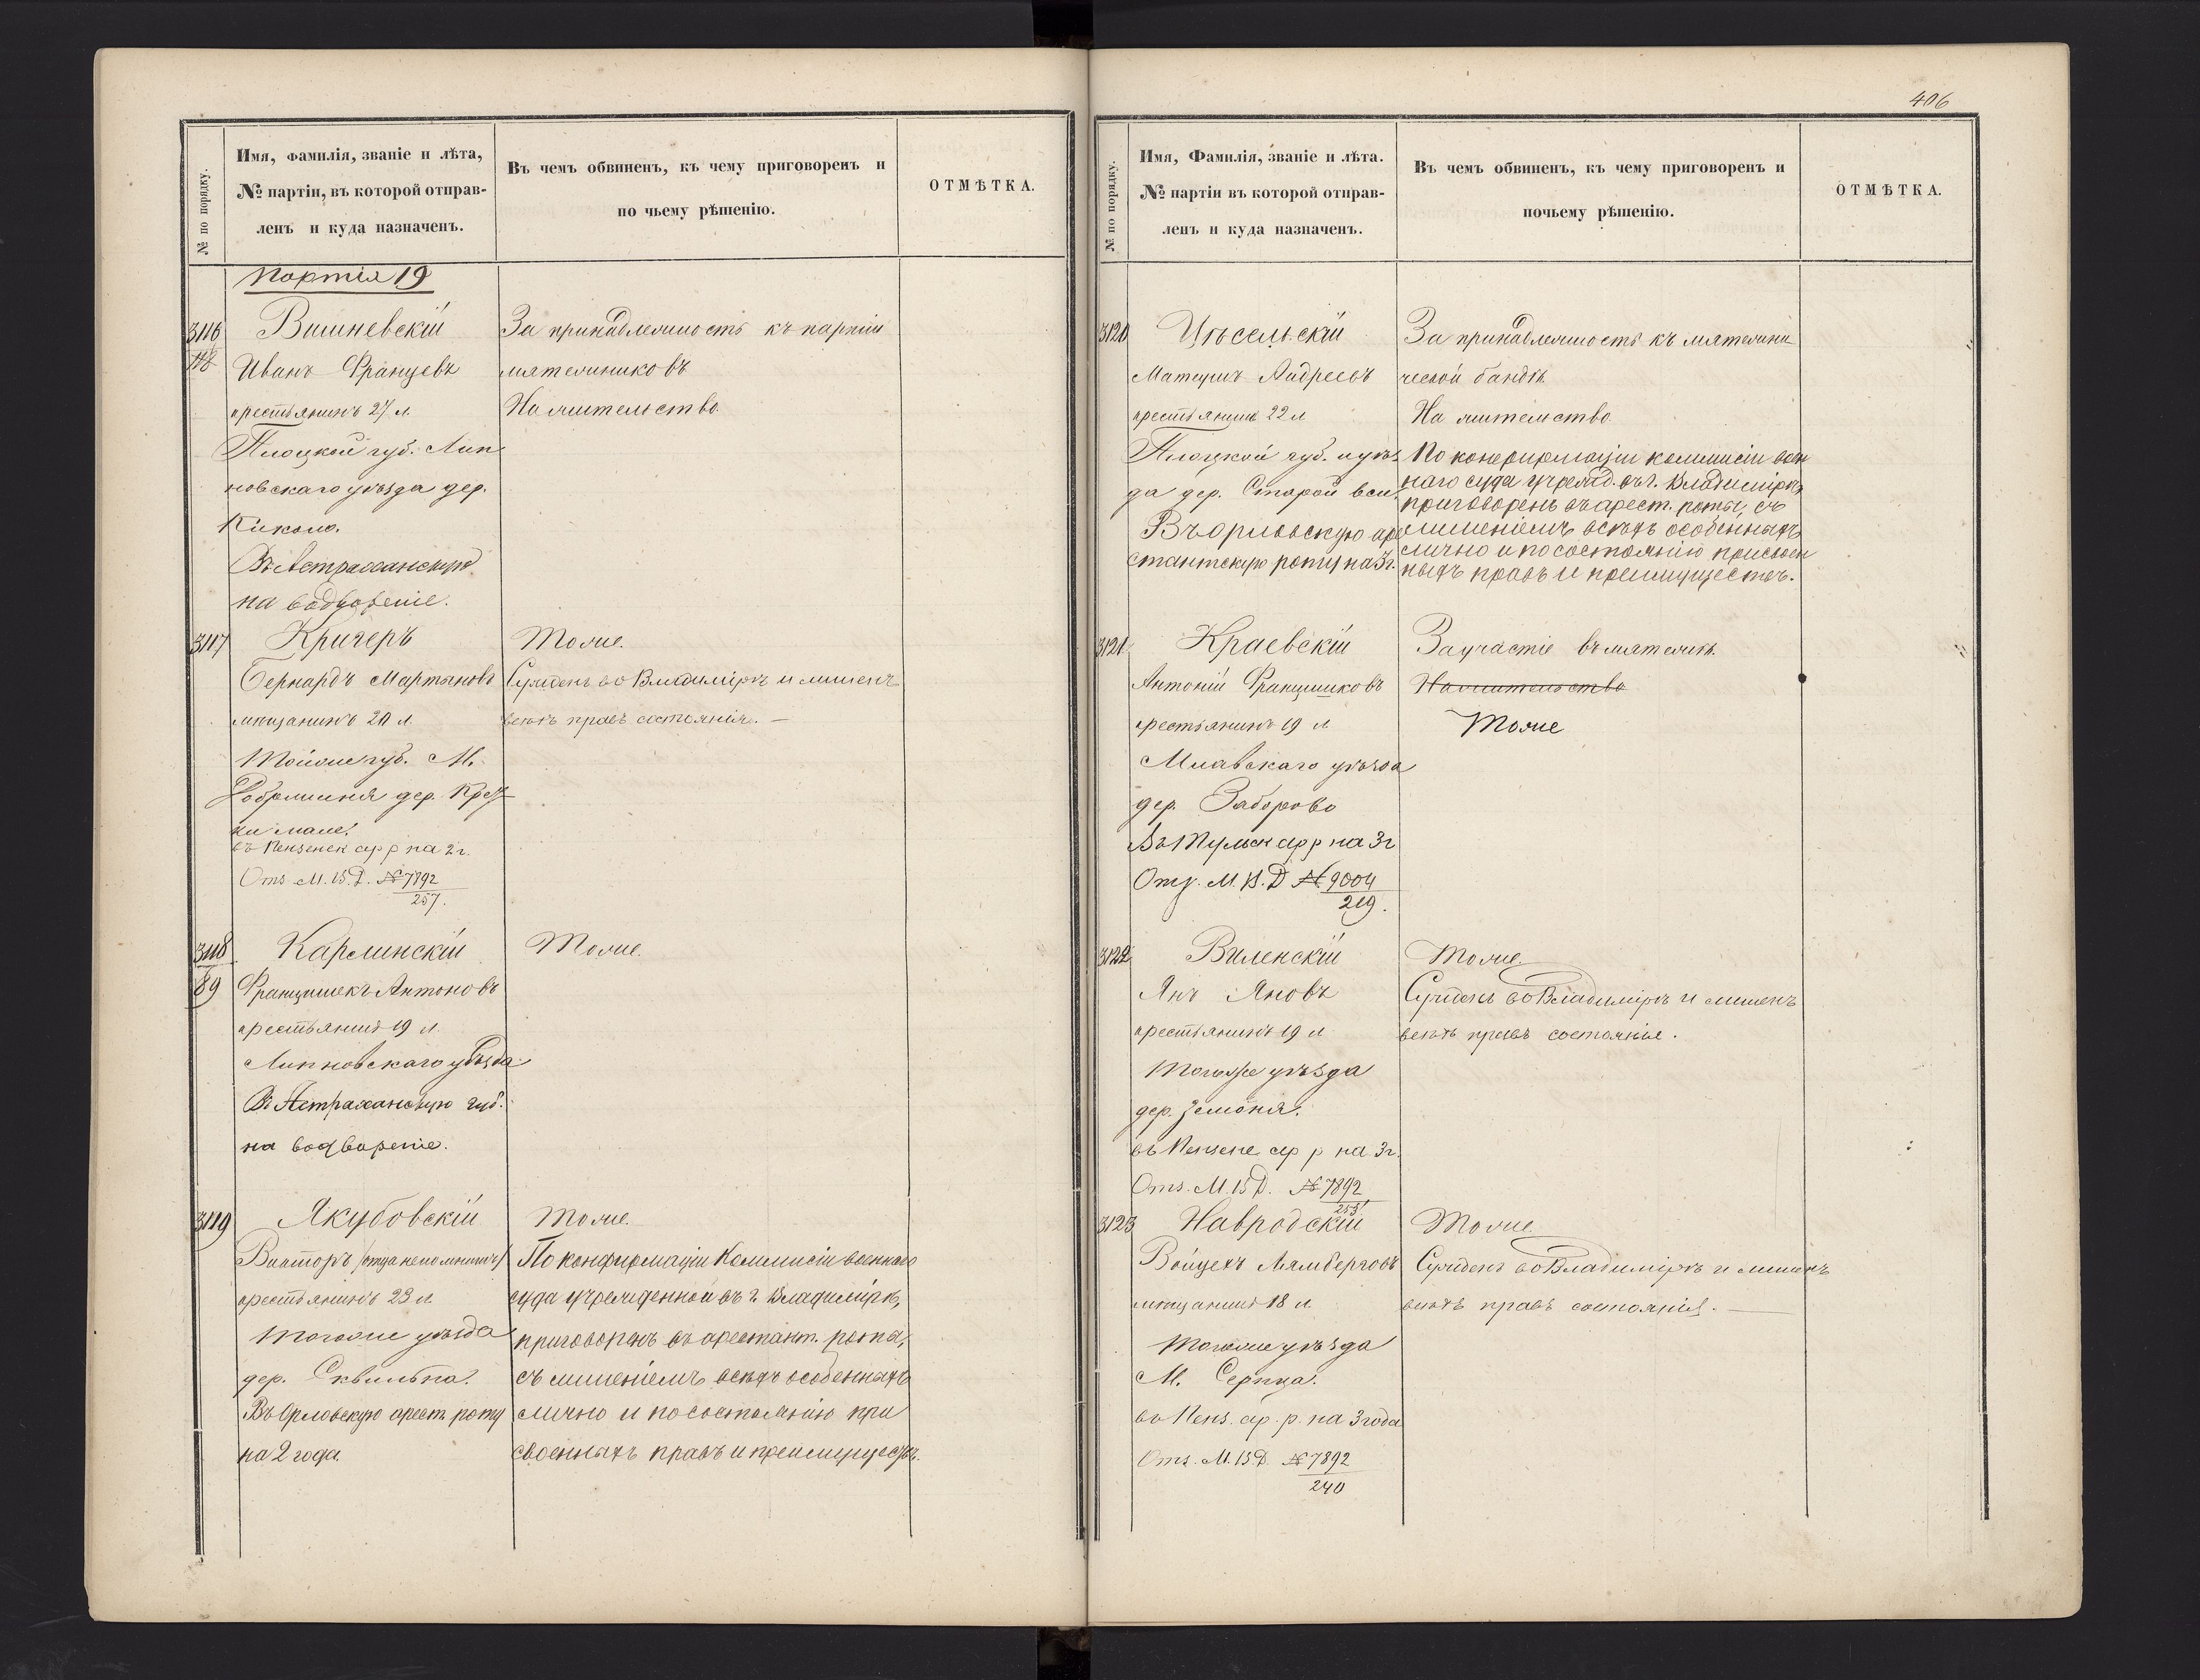 406
№ по порядку.
Имя, фамилія, званіе и лѣта,
№ партіи, въ которой отправ-
ленъ и куда назначенъ.
Въ чемъ обвиненъ, къ чему приговоренъ и
по чьему рѣшенію.
ОТМѢТКА.
Партія 19
3116
118
Вишневскій
Иванъ Францевъ
крестьянинъ 27 л.
Плоцкой губ. Лип
новскаго уѣзда дер.
Киколо.
Въ Астраханскую
на водвореніе.
За принадлежность къ партіи
мятежниковъ
На жительство.
3117
Кричеръ
Бернардъ Мартановъ
мѣщанинъ 20 л.
Тойже губ. М.
въ Пензенск ар р на 2 г.
Отз. М. В. Д. № 7892
257.
Тоже.
Сужденъ во Владимірѣ и лишенъ
всѣхъ правъ состоянія. —
3118
89
Карлинскій
Францишекъ Антоновъ
крестьянинъ 19 л.
Липновскаго уѣзда
Въ Астраханскую губ.
на водвореніе.
Тоже.
3119
Якубовскій
Викторъ /отца непомнитъ/
крестьянинъ 23 л.
Тогоже уѣзда
дер. Сквильна.
Въ Орловскую арест. роту
на 2 года.
Тоже.
По конфирмаціи Коммисіи военнаго
суда учрежденной въ г. Владимірѣ,
приговоренъ въ арестант. роты,
съ лишеніемъ всѣхъ особенныхъ
лично и по состоянію при
своенныхъ правъ и преимуществъ.
№ по порядку.
Имя, Фамилія, званіе и лѣта.
№ партіи въ которой отправ-
ленъ и куда назначенъ.
Въ чемъ обвиненъ, къ чему приговоренъ и
почьему рѣшенію.
ОТМѢТКА.
3120
Цѣсельскій
Матеушъ Андреевъ
крестьянинъ 22 л
Плоцкой губ. и уѣз
да дер. Старой вси
Въ орловскую аре
стантскую роту на 3 г.
За принадлежность къ мятежни
ческой бандѣ.
На жительство.
По конфирмаціи коммисіи воен
наго суда учрежд. въ г. Владимірѣ,
приговоренъ въ арест. роты, съ
лишеніемъ всѣхъ особенныхъ
лично и по состоянію присвоен
ныхъ правъ и преимуществъ.
3121
Краевскій
Антоній Францишковъ
крестьянинъ 19 л
Млавскаго уѣзда
дер. Заборово
Въ Тульск ар р на 3 г
Отз. М. В. Д № 9004
219.
За участіе въ мятежѣ.
На жительство
Тоже
3122
Виленскій
Янъ Яновъ
крестьянинъ 19 л
Тогоже уѣзда
дер. Земоня.
въ Пензенс ар р на 3 г.
Отз. М. В Д. № 7892
255
Тоже.
Сужденъ во Владимірѣ и лишенъ
всѣхъ правъ состоянія.
3123
Навродскій
Войцехъ Лямберговъ
мѣщанинъ 18 л.
Тогоже уѣзда
М. Серпца.
въ Пенз. ар. р. на 3 года
Отз. М. В. Д. № 7892
240
Тоже.
Сужденъ во Владимірѣ и лишенъ
всѣхъ правъ состоянія. —